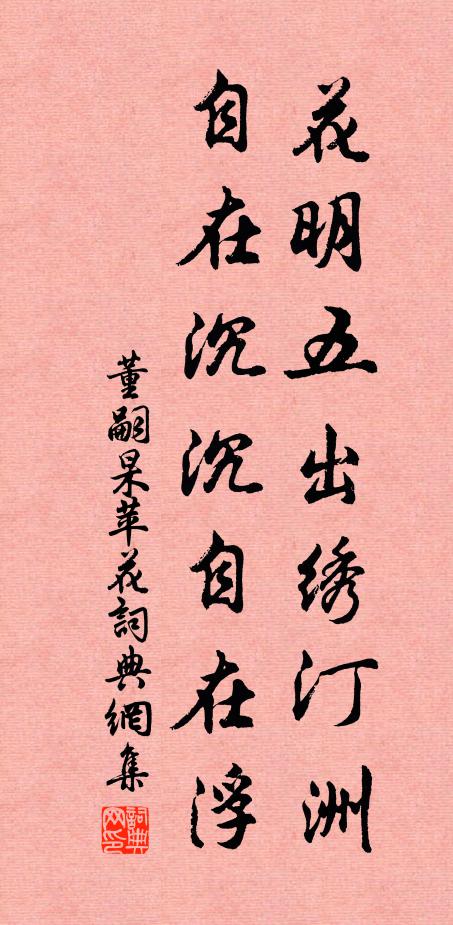 花明五出绣汀洲
自在沉沉自在浮
董嗣杲苹花詞典網集
詞典网印